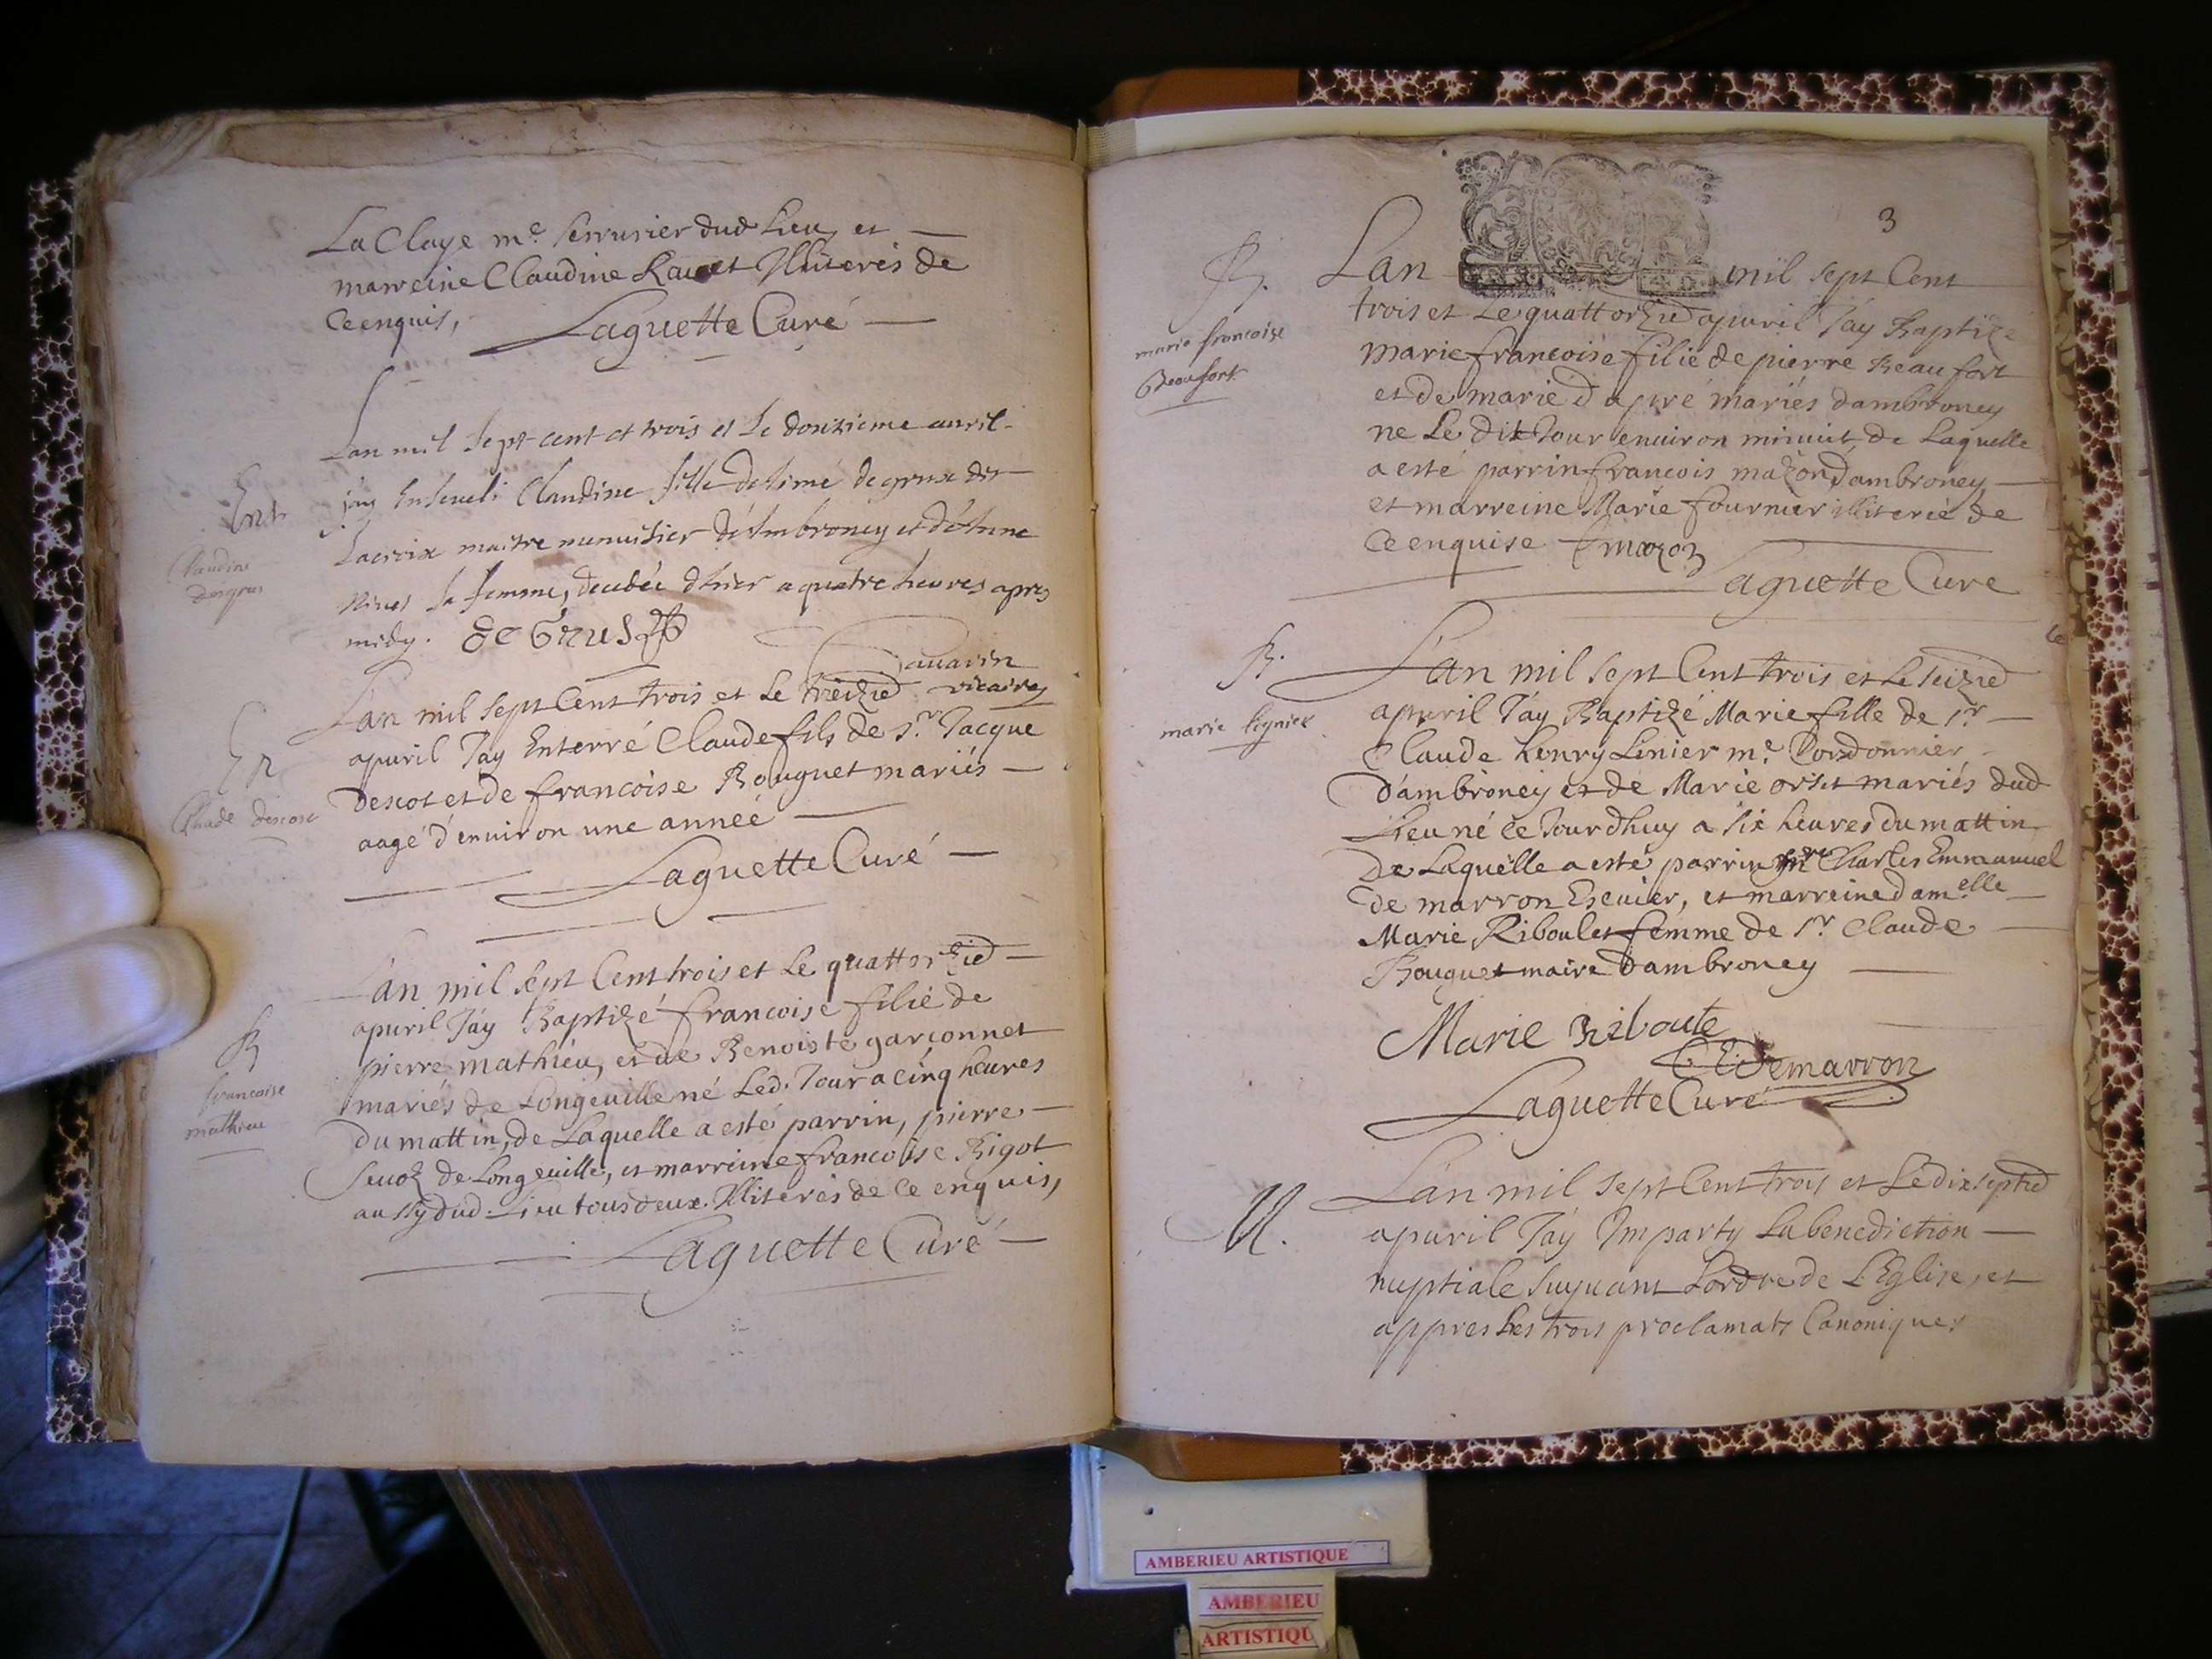 La Claye me. serrurier dud Lieu, et
marreine Claudine Ravet Illiterés de
Ce enquis, Laguette Curé
Lan mil sept cent et trois et le douzieme auril
j'ay Enseueli Claudine fille de Aimé degrux dit
Ent
Lacroix maitre menuisier d'Ambroney et d'Anne
Claudine
degrus
sa femme, decedée d'hier a quatre heures apres
midy. De Grus
Sauarin
vicaire
L'an mil sept Cent trois et Le treizie
apuril J'ay Enterré Claude fils de Sr. Jacque
En
Descot et de francoise Bouguet mariés
Claude descot
aagé d'enuiron une année
Laguette Curé
L'an mil sept Cent trois et Le quattorzie
apuril J'ay Baptizé francoise filie de
B
pierre mathieu, et de Benoiste garconnet
francoise
mathieu
mariés de Longeuille né Led. Jour a cinq heures
du mattin, de Laquelle a esté parrin, pierre
de Longeuille, et marreine francoise Bigot
aussy dud. Lieu tous deux Illiterés de Ce enquis,
Laguette Curé
3
B.
Lan mil sept Cent
trois et Le quattorzie apuril J'ay Baptizé
marie francoise
Beaufort
marie francoise filie de pierre Beaufort
et de marie d apvré mariés dambroney
ne Le dit Jour enuiron minuit de Laquelle
a esté parrin francois mazon Dambroney
et marreine Marie fournier illiterée de
Ce enquise f mazon
Laguette Cure
B.
L'an mil sept Cent trois et Le seizie
apuril J'ay Baptizé Marie fille de Sr
marie ligniez
Claude henry Linier me. Cordonnier
D'ambroney et de Marie orset mariés dud
Lieu né Ce Jourdhuy a six heures du mattin
De Laquelle a esté parrin Charles Emmanuel
de marron Escuier, et marreine damelle
Marie Riboulet femme de Sr Claude
Bouguet maire Dambroney
Marie riboute
CEDemarron
Laguette Curé
M.
L'an mil sept Cent trois et Le dix septie
apuril J'ay Imparty La benediction
nuptiale suyuant Lordre de L'Eglise, et
appres Les trois proclamats Canoniques
AMBERIEU ARTISTIQUE
AMBERIEU
ARTISTIQU